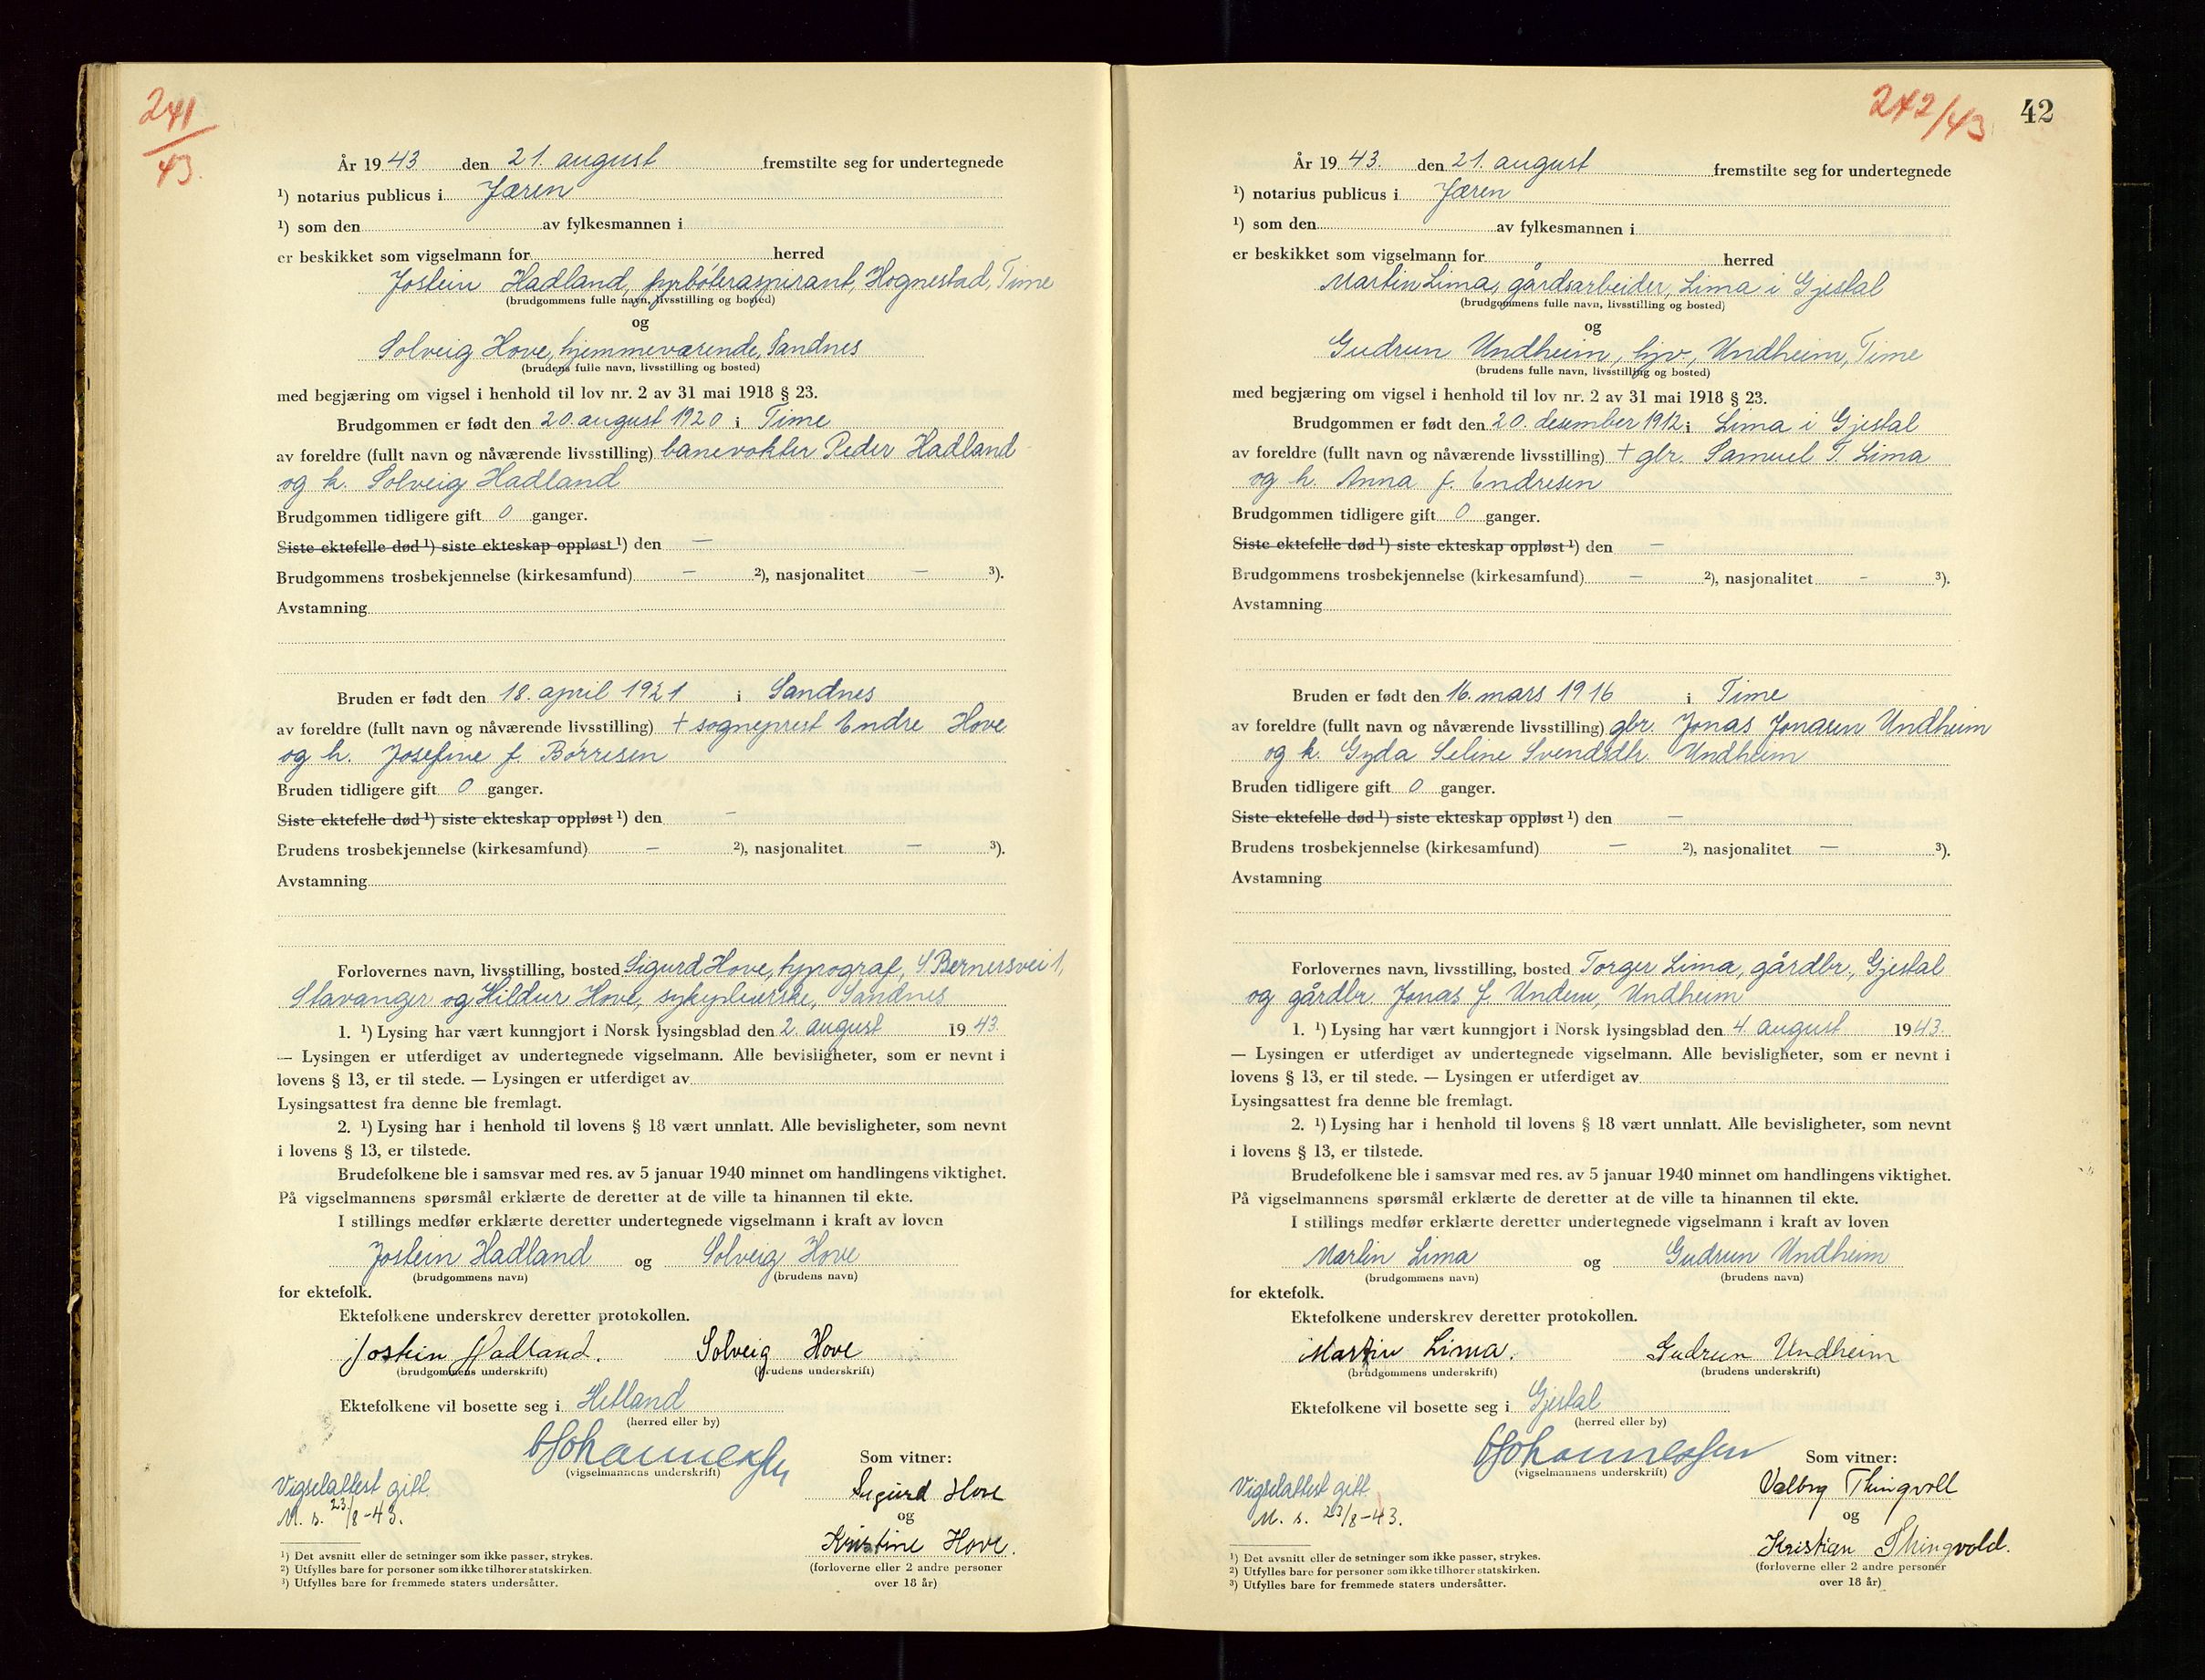 241
43.
År 1943 den 21. august fremstilte seg for undertegnede
¹) notarius publicus i Jæren
¹) som den av fylkesmannen i
er beskikket som vigselmann for herred
Jostein Hadland, fyrbøteraspirant, Hognestad, Time
(brudgommens fulle navn, livsstilling og bosted)
og
Solveig Hove, hjemmeværende, Sandnes
(brudens fulle navn, livsstilling og bosted)
med begjæring om vigsel i henhold til lov nr. 2 av 31 mai 1918 § 23.
Brudgommen er født den 20. august 1920 i Time
av foreldre (fullt navn og nåværende livsstilling) banevokter Peder Hadland
og h. Solveig Hadland
Brudgommen tidligere gift 0 ganger.
Siste ektefelle død ¹) siste ekteskap oppløst ¹) den —
Brudgommens trosbekjennelse (kirkesamfund) — ²), nasjonalitet — ³).
Avstamning
Bruden er født den 18. april 1921 i Sandnes
av foreldre (fullt navn og nåværende livsstilling) + sogneprest Endre Hove
og h. Josefine f. Børresen
Bruden tidligere gift 0 ganger.
Siste ektefelle død ¹) siste ekteskap oppløst ¹) den —
Brudens trosbekjennelse (kirkesamfund) — ²), nasjonalitet — ³).
Avstamning
Forlovernes navn, livsstilling, bosted Sigurd Hove, typograf, S. Bernersvei 1,
Stavanger og Hildur Hove, sykepleierske, Sandnes
1. ¹) Lysing har vært kunngjort i Norsk lysingsblad den 2. august 1943.
— Lysingen er utferdiget av undertegnede vigselmann. Alle bevisligheter, som er nevnt i
lovens § 13, er til stede. — Lysingen er utferdiget av
Lysingsattest fra denne ble fremlagt.
2. ¹) Lysing har i henhold til lovens § 18 vært unnlatt. Alle bevisligheter, som nevnt
i lovens § 13, er tilstede.
Brudefolkene ble i samsvar med res. av 5 januar 1940 minnet om handlingens viktighet.
På vigselmannens spørsmål erklærte de deretter at de ville ta hinannen til ekte.
I stillings medfør erklærte deretter undertegnede vigselmann i kraft av loven
Jostein Hadland og Solveig Hove
(brudgommens navn) (brudens navn)
for ektefolk.
Ektefolkene underskrev deretter protokollen.
Jostein Hadland. Solveig Hove
(brudgommens underskrift) (brudens underskrift)
Ektefolkene vil bosette seg i Hetland
(herred eller by)
Johannessen
(vigselmannens underskrift)
Som vitner:
Vigselattest gitt.
M. s. 23/8-43.
Sigurd Hove
og
Kristine Hove.
(forloverne eller 2 andre personer
over 18 år)
¹) Det avsnitt eller de setninger som ikke passer, strykes.
²) Utfylles bare for personer som ikke tilhører statskirken.
³) Utfylles bare for fremmede staters undersåtter.
242/43
42
År 1943. den 21. august fremstilte seg for undertegnede
¹) notarius publicus i Jæren
¹) som den av fylkesmannen i
er beskikket som vigselmann for herred
Martin Lima, gårdsarbeider, Lima i Gjestal
(brudgommens fulle navn, livsstilling og bosted)
og
Gudrun Undheim, hjv., Undheim, Time
(brudens fulle navn, livsstilling og bosted)
med begjæring om vigsel i henhold til lov nr. 2 av 31 mai 1918 § 23.
Brudgommen er født den 20. desember 1912 i Lima i Gjestal
av foreldre (fullt navn og nåværende livsstilling) + gbr. Samuel T. Lima
og h. Anna f. Endresen
Brudgommen tidligere gift 0 ganger.
Siste ektefelle død ¹) siste ekteskap oppløst ¹) den —
Brudgommens trosbekjennelse (kirkesamfund) — ²), nasjonalitet — ³).
Avstamning
Bruden er født den 16. mars 1916 i Time
av foreldre (fullt navn og nåværende livsstilling) gbr. Jonas Jonasen Undheim
og h. Gyda Seline Svendsdtr. Undheim
Bruden tidligere gift 0 ganger.
Siste ektefelle død ¹) siste ekteskap oppløst ¹) den —
Brudens trosbekjennelse (kirkesamfund) — ²), nasjonalitet — ³).
Avstamning
Forlovernes navn, livsstilling, bosted Torger Lima, gårdbr., Gjestal
og gårdbr. Jonas J. Undem, Undheim
1. ¹) Lysing har vært kunngjort i Norsk lysingsblad den 4. august 1943.
— Lysingen er utferdiget av undertegnede vigselmann. Alle bevisligheter, som er nevnt i
lovens § 13, er til stede. — Lysingen er utferdiget av
Lysingsattest fra denne ble fremlagt.
2. ¹) Lysing har i henhold til lovens § 18 vært unnlatt. Alle bevisligheter, som nevnt
i lovens § 13, er tilstede.
Brudefolkene ble i samsvar med res. av 5 januar 1940 minnet om handlingens viktighet.
På vigselmannens spørsmål erklærte de deretter at de ville ta hinannen til ekte.
I stillings medfør erklærte deretter undertegnede vigselmann i kraft av loven
Martin Lima og Gudrun Undheim
(brudgommens navn) (brudens navn)
for ektefolk.
Ektefolkene underskrev deretter protokollen.
Martin Lima. Gudrun Undheim
(brudgommens underskrift) (brudens underskrift)
Ektefolkene vil bosette seg i Gjestal
(herred eller by)
Johannessen
(vigselmannens underskrift)
Som vitner:
Vigselattest gitt
M. s. 23/8-43.
Valbrg Thingvoll
og
Kristian Thingvold.
(forloverne eller 2 andre personer
over 18 år)
¹) Det avsnitt eller de setninger som ikke passer, strykes.
²) Utfylles bare for personer som ikke tilhører statskirken.
³) Utfylles bare for fremmede staters undersåtter.